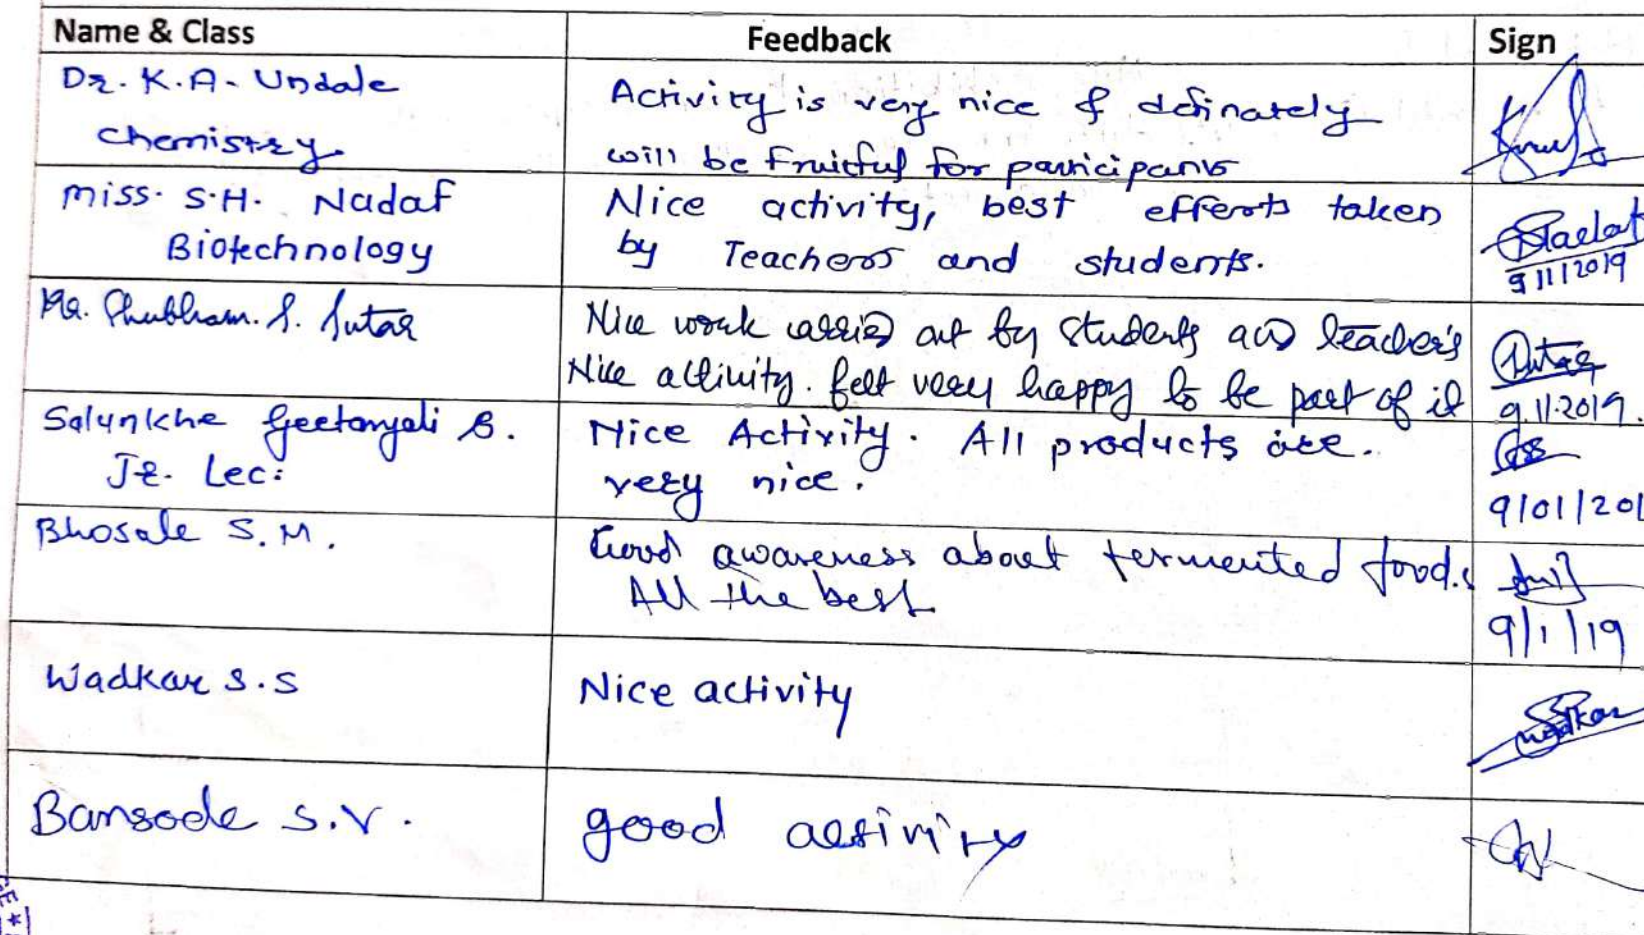 Name & Class Feedback Sign
Dr. K.A. Undale
Chemistry.
Activity is very nice & definately
will be Fruitful for participants
miss. S.H. Nadaf
Biotechnology
Nice activity, best efforts taken
by Teachers and students.
Nadaf
9/11/2019
Mr. Shubham. S. Sutar
Nice work carried out by students and teacher's
Nice activity. felt very happy to be part of it
Sutar
9.11.2019.
Salunkhe Geetanjali B.
Jr. Lec:
Nice Activity. All products are.
very nice.
9/01/201
Bhosale S.M.
Good awareness about fermented foods
All the best
9/1/19
Wadkar S.S
Nice activity
Wadkar
Bansode S.V.
good activity
GE *